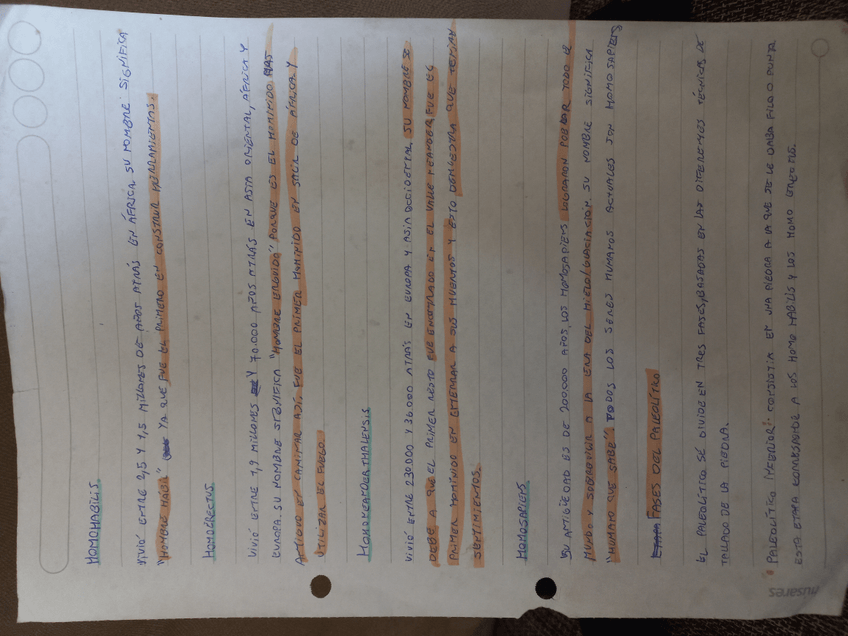 HOMOHABILIS
VIVIÓ ENTRE 2,5 Y 1,5 MILLONES DE AÑOS ATRÁS EN ÁFRICA SU NOMBRE SIGNIFICA
"HOMBRE HÁBIL" YA QUE FUE EL PRIMERO EN CONSTRUIR HERRAMIENTAS.
HOMOERECTUS
VIVIÓ ENTRE 1,9 MILLONES Y 70.000 AÑOS ATRÁS EN ASIA ORIENTAL, ÁFRICA Y
EUROPA. SU NOMBRE SIGNIFICA "HOMBRE ERGUIDO" PORQUE ES EL HOMINIDO MAS
ANTIGUO EN CAMINAR ASÍ, FUE EL PRIMER HOMINIDO EN SALIR DE ÁFRICA Y
UTILIZAR EL FUEGO.
HOMONEANDERTHALENSIS
VIVIÓ ENTRE 230.000 Y 36.000 ATRÁS EN EUROPA Y ASIA OCCIDENTAL, SU NOMBRE SE
DEBE A QUE EL PRIMER RESTO FUE ENCONTRADO EN EL VALLE NEANDER, FUE EL
PRIMER HOMINIDO EN ENTERRAR A SUS MUERTOS Y ESTO DEMUESTRA QUE TENIAN
SENTIMIENTOS.
HOMOSAPIENS
SU ANTIGÜEDAD ES DE 200.000 AÑOS, LOS HOMOSAPIENS LOGRARON POBLAR TODO EL
MUNDO Y SOBREVIVIR A LA ERA DEL HIELO/GLACIACIÓN SU NOMBRE SIGNIFICA
"HUMANO QUE SABE" TODOS LOS SERES HUMANOS ACTUALES SON HOMO SAPIENS
ETAPA FASES DEL PALEOLÍTICO
EL PALEOLÍTICO SE DIVIDE EN TRES FASES, BASADAS EN LAS DIFERENTES TÉCNICAS DE
TALLADO DE LA PIEDRA.
PALEOLÍTICO INFERIOR: CONSISTIA EN UNA PIEDRA A LA QUE SE LE DABA FILO O PUNTA
ESTA ETAPA CORRESPONDE A LOS HOMO HABILIS Y LOS HOMO ERECTUS.
nusares